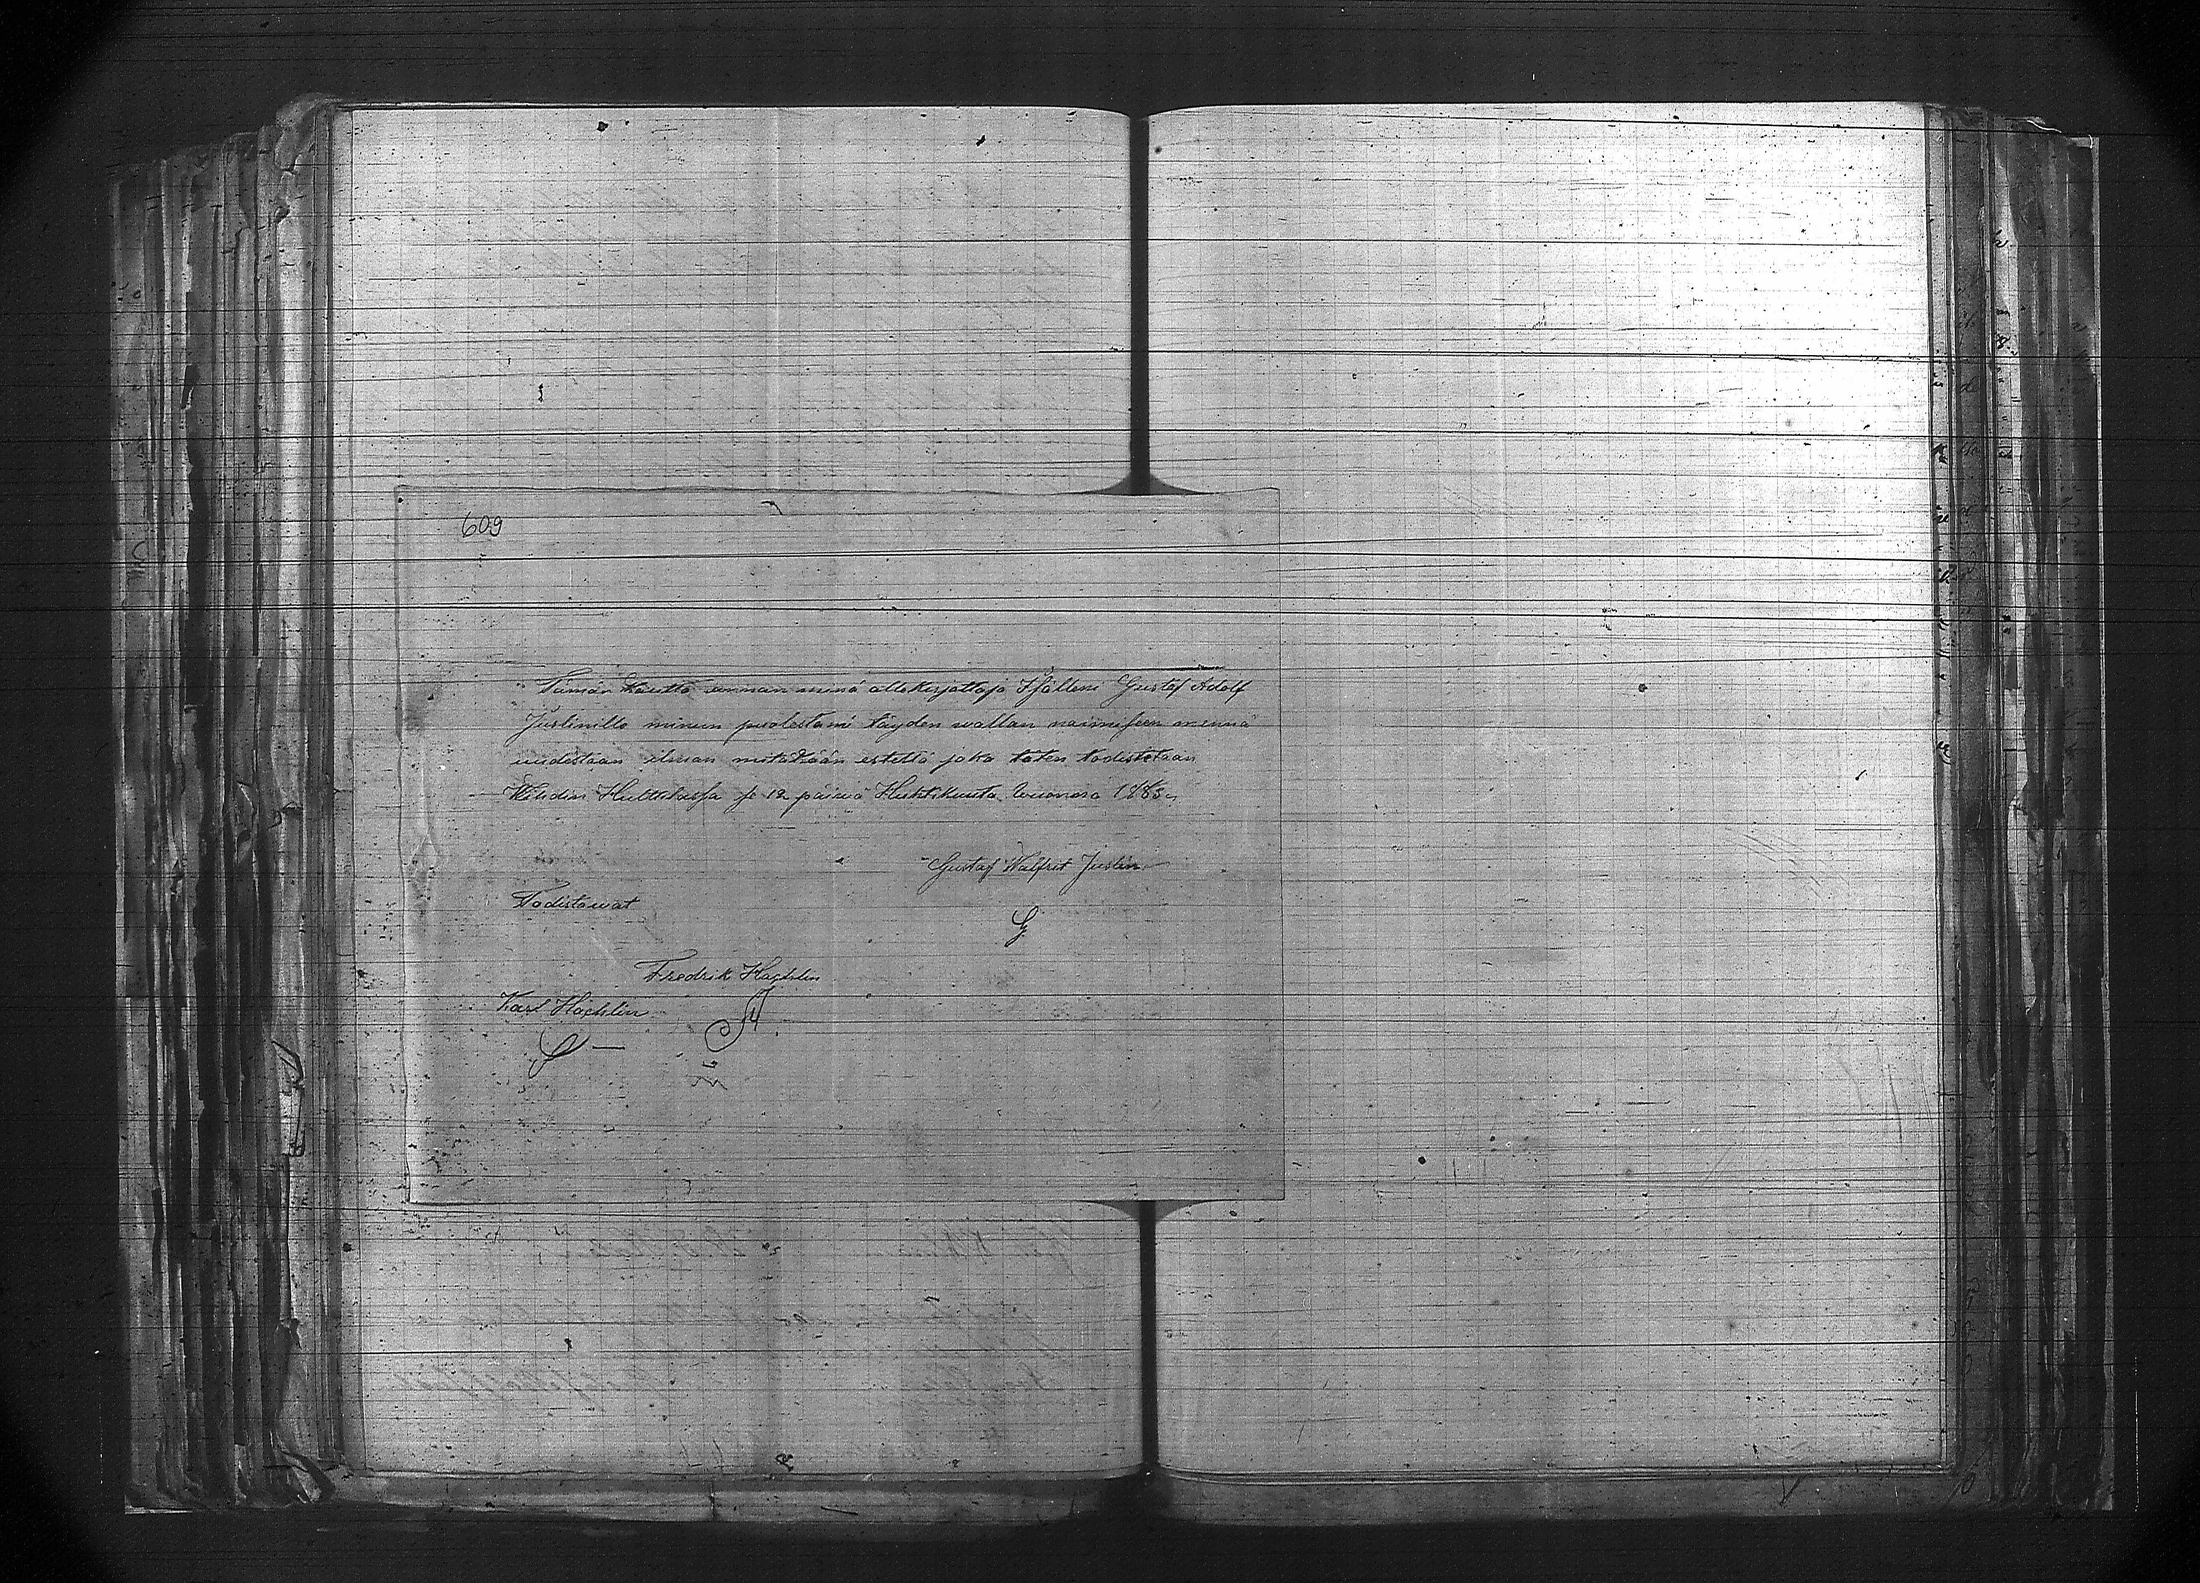 609
Tämän kautta annan minä allekirjottaja Isälleni Gustaf Adolf
Juslinille minun puolestani täyden wallan naimiseen mennä
uudestaan ilman mitäkään estettä joka täten todistetaan
12 päiwä Huhtikuuta wuonna 1883
Gustaf Walfrit Juslin
Todistawat
Fredrik Hachlin
Karl Hachlin